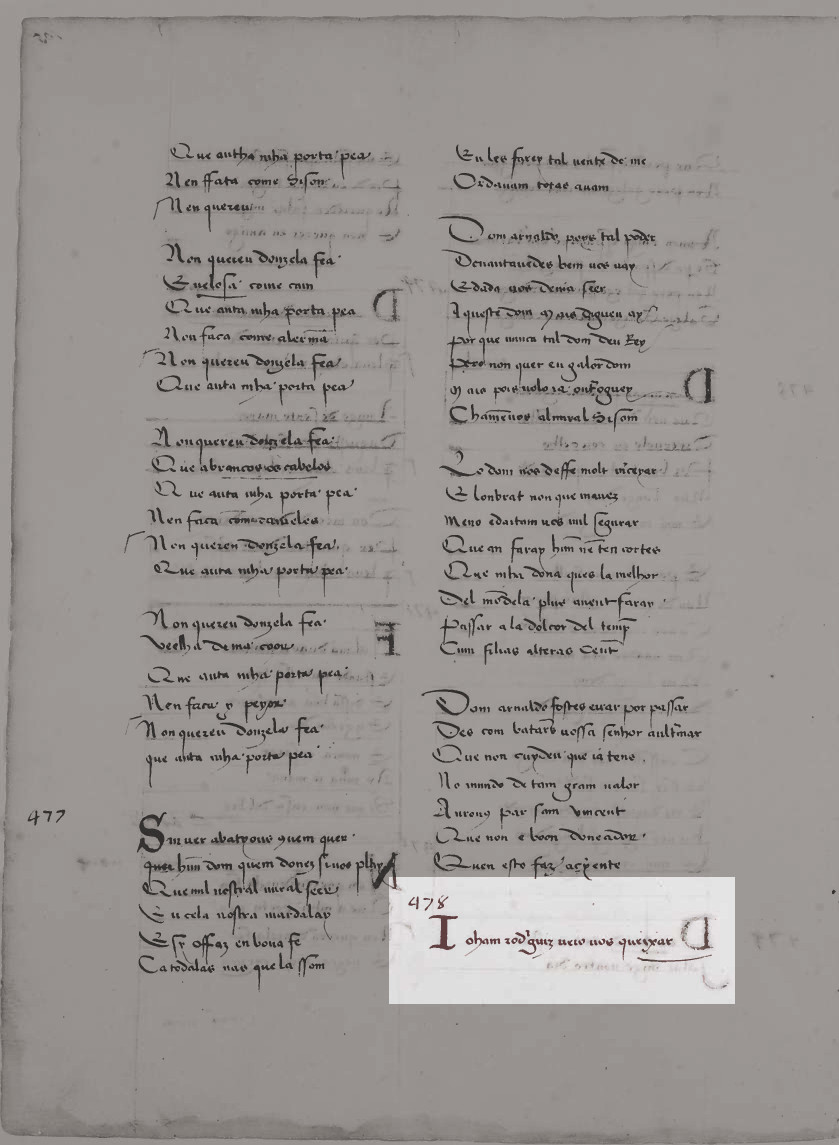 Que autha mha porta pea
Nen ffata come Sison
Nen quereu
Non quereu donzela fea
E uelosa come cam
Que anta mha porta pea
Nen faca come alerma
Non quereu donzela fea
Que anta mha porta pea
Non quereu donzela fea
Que abrancos os cabelos
Que anta mha porta pea
Nen faca come camelos
Non quereu donzela fea
Que anta mha porta pea
Non quereu donzela fea
Veelha de ma coor
Que anta mha porta pea
Nen faca y peyor
Non quereu donzela fea
que anta mha porta pea
477
Sinuer abatyous quem quer
quer dom quem donez sinos
Que mil nostral
Eu cela nostra mardalay
E sy offaz en bona fe
Ca todalas nas que la ssom
Eu les farey tal uente de me
Ordauam totas auam
Dom arnaldo poys tal poder
Deuantauedes bem ues uay
E dada uos deuia seer
Aqueste dom
por que nunca tal dom deu Rey
Pero non quer eu galardom
Mais pois uolo ia outroguey
Chamenos almiral Sisom
Lo dom uos deffe molt
E lonbrat non que
Meno edaitam ues mil segurar
Que an faray hun
Que mha dona ques la melhor
Del mōdela plus auent farar
Passar a la dolcor del temp
Cum filias alteras Cent
Dom arnaldo fostes errar por passar
Des com batars uossa senhor aultmar
Que non cuydeu que ia tens
No mundo de tam gram ualor
A iurouy par sam vincent
Que non e boon doneador
Quen esto faz açyente
478
Ioham rodguiz ueio uos queixar